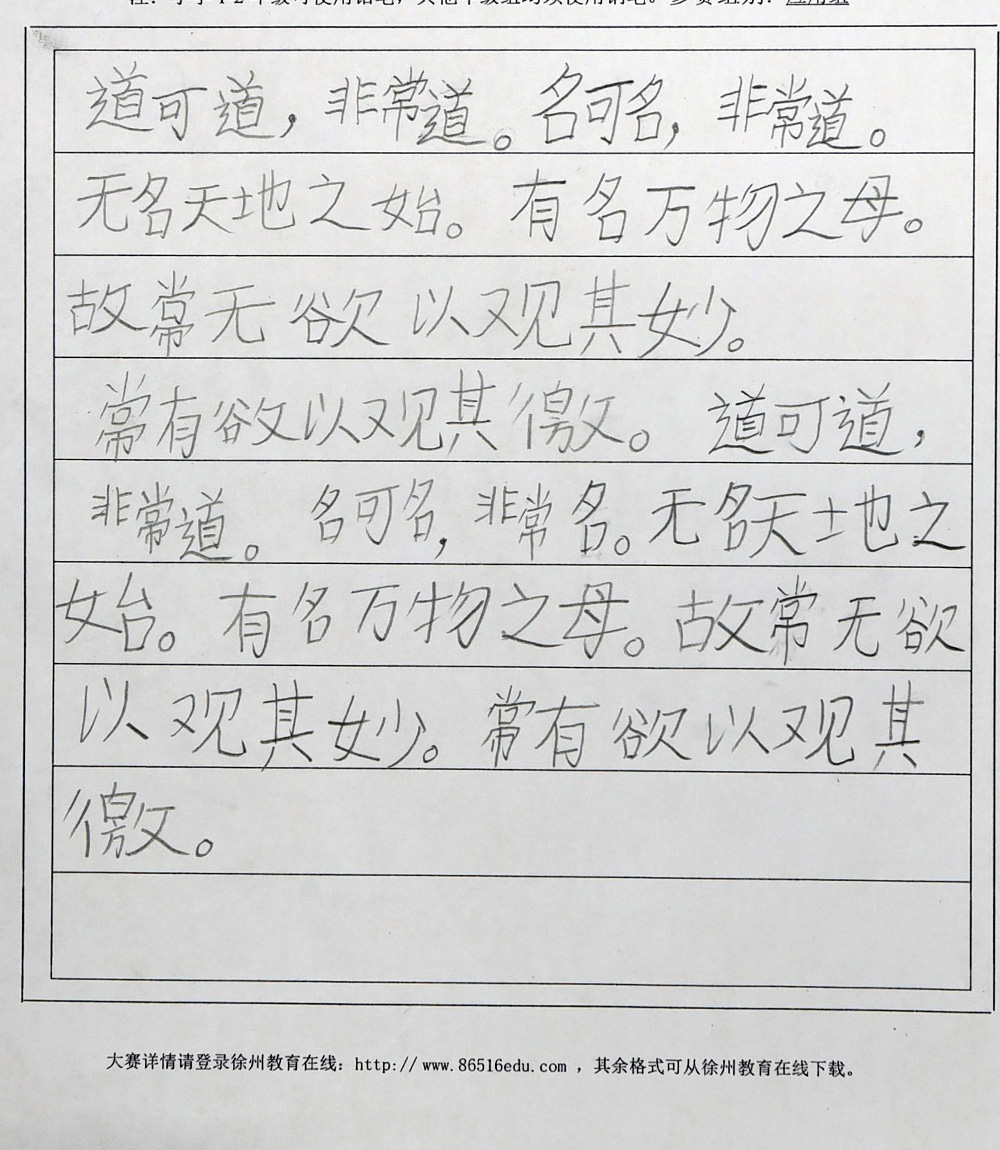 道可道，非常道。名可名，非常道。
无名天地之始。有名万物之母。
故常无欲以观其妙。
常有欲以观其徼。道可道，
非常道。名可名，非常名。无名天地之
始。有名万物之母。故常无欲
以观其妙。常有欲以观其
徼。
大赛详情请登录徐州教育在线：http://www.86516edu.com，其余格式可从徐州教育在线下载。